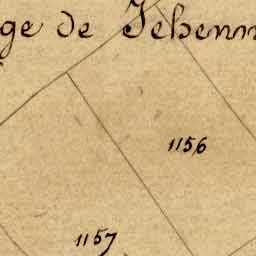 ge de Jehenn
1156
1157